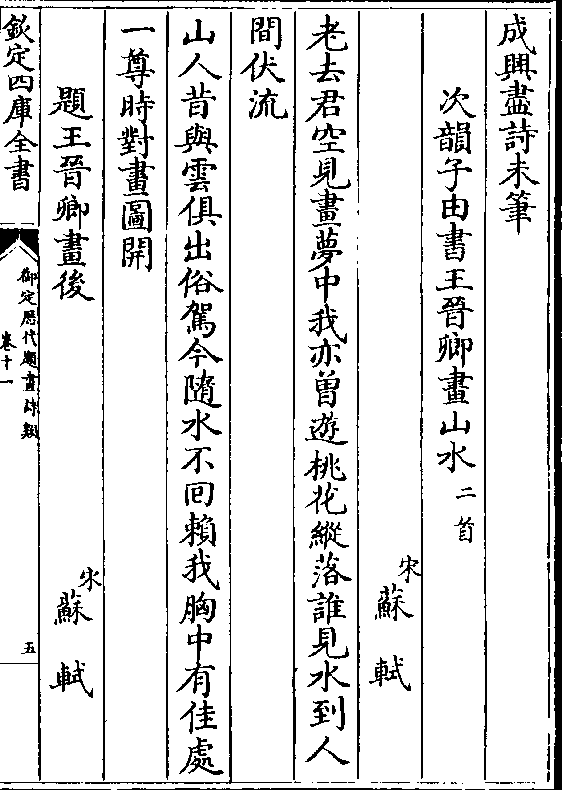 成興盡詩未筆
次韻子由書王晉卿畫山水二首
宋蘇軾
老去君空見畫夢中我亦曾遊桃花縱落誰見水到人
間伏流
山人昔與雲俱出俗駕今隨水不回賴我胸中有佳處
一尊時對畫圖開
題王晉卿畫後
宋蘇軾
欽定四庫全書
御定歷代題畫詩類
卷十一
五